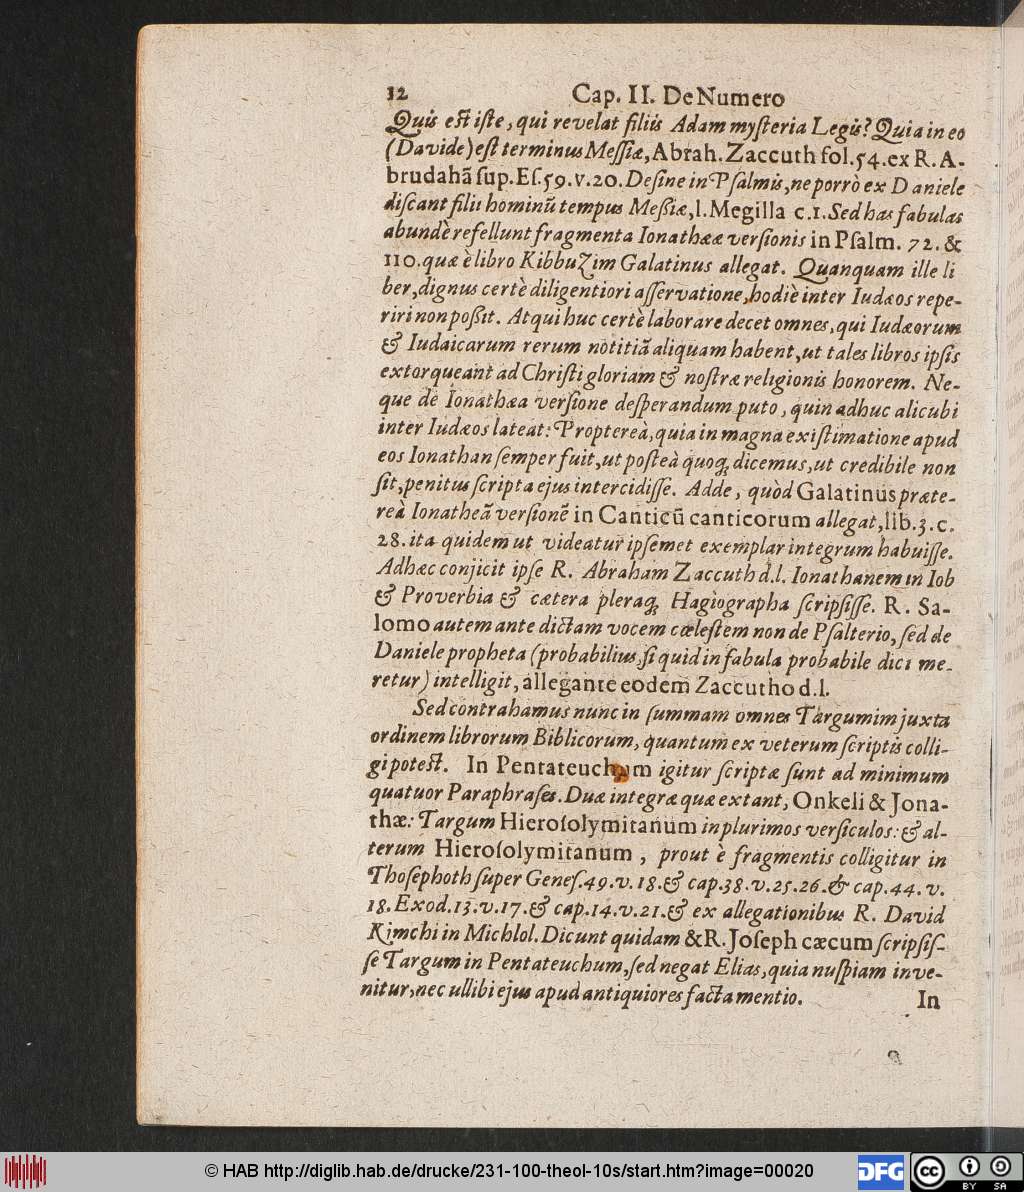 12 Cap. II. De Numero
Quis eſt iſte, qui revelat filiis Adam myſteria Legis? Quia in eo
(Davide) eſt terminus Meſſiæ, Abrah. Zaccuth fol. 54. ex R. A-
brudahã ſup. Eſ. 59. v. 20. Deſine in Pſalmis, ne porrò ex Daniele
diſcant filii hominũ tempus Meßiæ, l. Megilla c. 1. Sed has fabulas
abundè refellunt fragmenta Ionathææ verſionis in Pſalm. 72. &
110. quæ è libro Kibbuzim Galatinus allegat. Quanquam ille li
ber, dignus certè diligentiori aſſervatione, hodiè inter Iudæos repe-
riri non poßit. Atqui huc certè laborare decet omnes, qui Iudæorum
& Iudaicarum rerum notitiã aliquam habent, ut tales libros ipſis
extorqueant ad Chriſti gloriam & noſtræ religionis honorem. Ne-
que de Ionathæa verſione deſperandum puto, quin adhuc alicubi
inter Iudæos lateat: Propterea, quia in magna exiſtimatione apud
eos Ionathan ſemper fuit, ut poſteà quoq; dicemus, ut credibile non
ſit, penitus ſcripta ejus intercidiſſe. Adde, quòd Galatinus præte-
reà Ionatheã verſionẽ in Canticũ canticorum allegat, lib. 3. c.
28. ita quidem ut videatur ipſemet exemplar integrum habuiſſe.
Adhæc conjicit ipſe R. Abraham Zaccuth d. l. Ionathanem in Iob
& Proverbia & cætera pleraq; Hagiographa ſcripſiſſe. R. Sa-
lomo autem ante dictam vocem cœleſtem non de Pſalterio, ſed de
Daniele propheta (probabilius, ſi quid in fabula probabile dici me-
retur) intelligit, allegante eodem Zaccutho d. l.
Sed contrahamus nunc in ſummam omnes Targumim juxta
ordinem librorum Biblicorum, quantum ex veterum ſcriptis colli-
gi poteſt. In Pentateuchum igitur ſcriptæ ſunt ad minimum
quatuor Paraphraſes. Duæ integræ quæ extant, Onkeli & Jona-
thæ: Targum Hieroſolymitanum in plurimos verſiculos: & al-
terum Hieroſolymitanum, prout è fragmentis colligitur in
Thoſephoth ſuper Geneſ. 49. v. 18. & cap. 38. v. 25. 26. & cap. 44. v.
18. Exod. 13. v. 17. & cap. 14. v. 21. & ex allegationibus R. David
Kimchi in Michlol. Dicunt quidam & R. Joſeph cæcum ſcripſiſ-
ſe Targum in Pentateuchum, ſed negat Elias, quia nuſpiam inve-
nitur, nec ullibi ejus apud antiquiores facta mentio.
In
© HAB http://diglib.hab.de/drucke/231-100-theol-10s/start.htm?image=00020
DFG
cc
BY SA